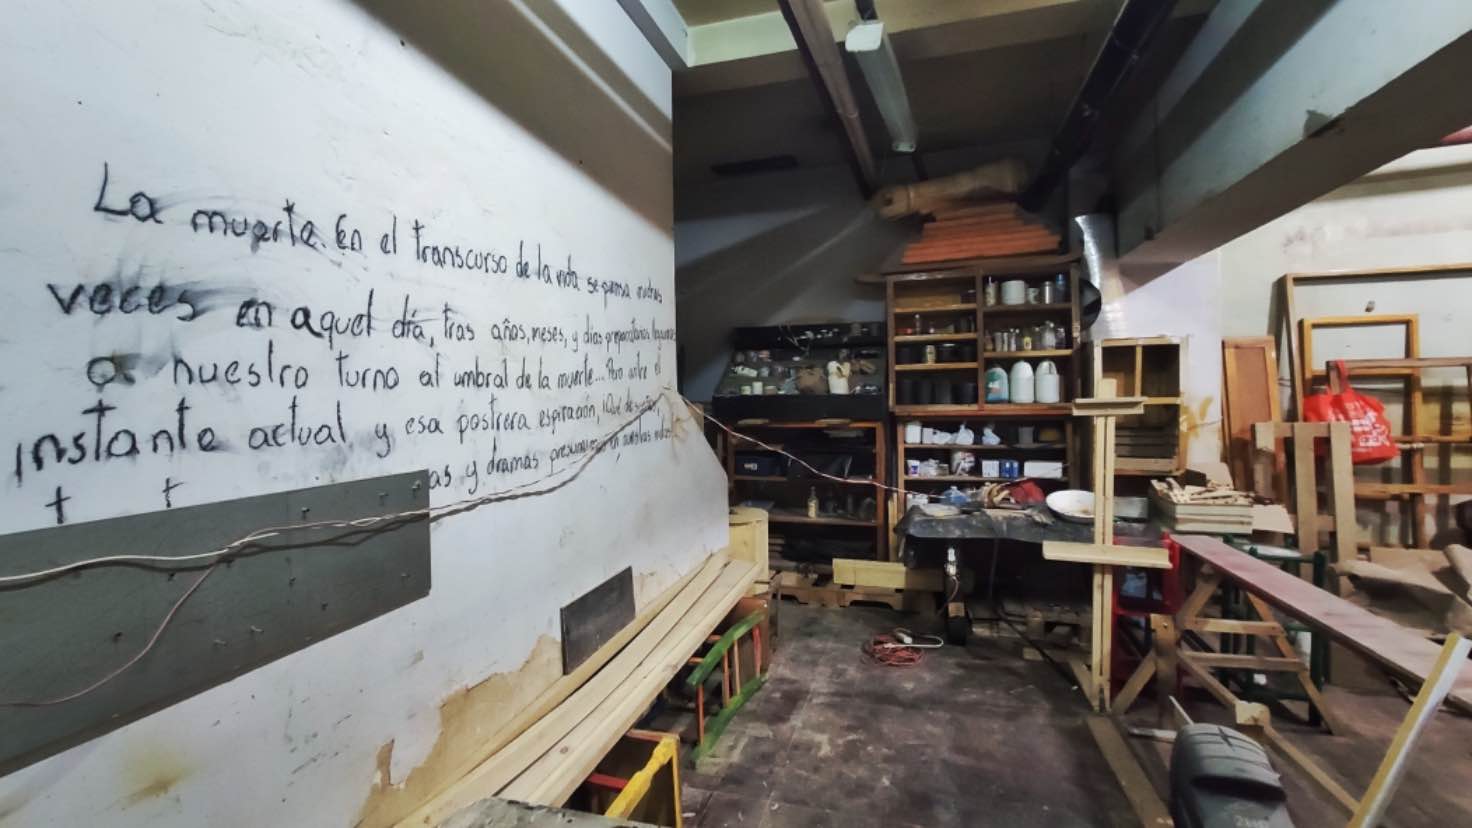 La muerte. En el transcurso de la vida se piensa muchas
veces en aquel día, tras años, meses, y días preparatorios llegamos
a nuestro turno al umbral de la muerte... Pero entre el
instante actual y esa postrera espiración, ¡Qué de sueños,
as y dramas presumimos en nuestras vidas